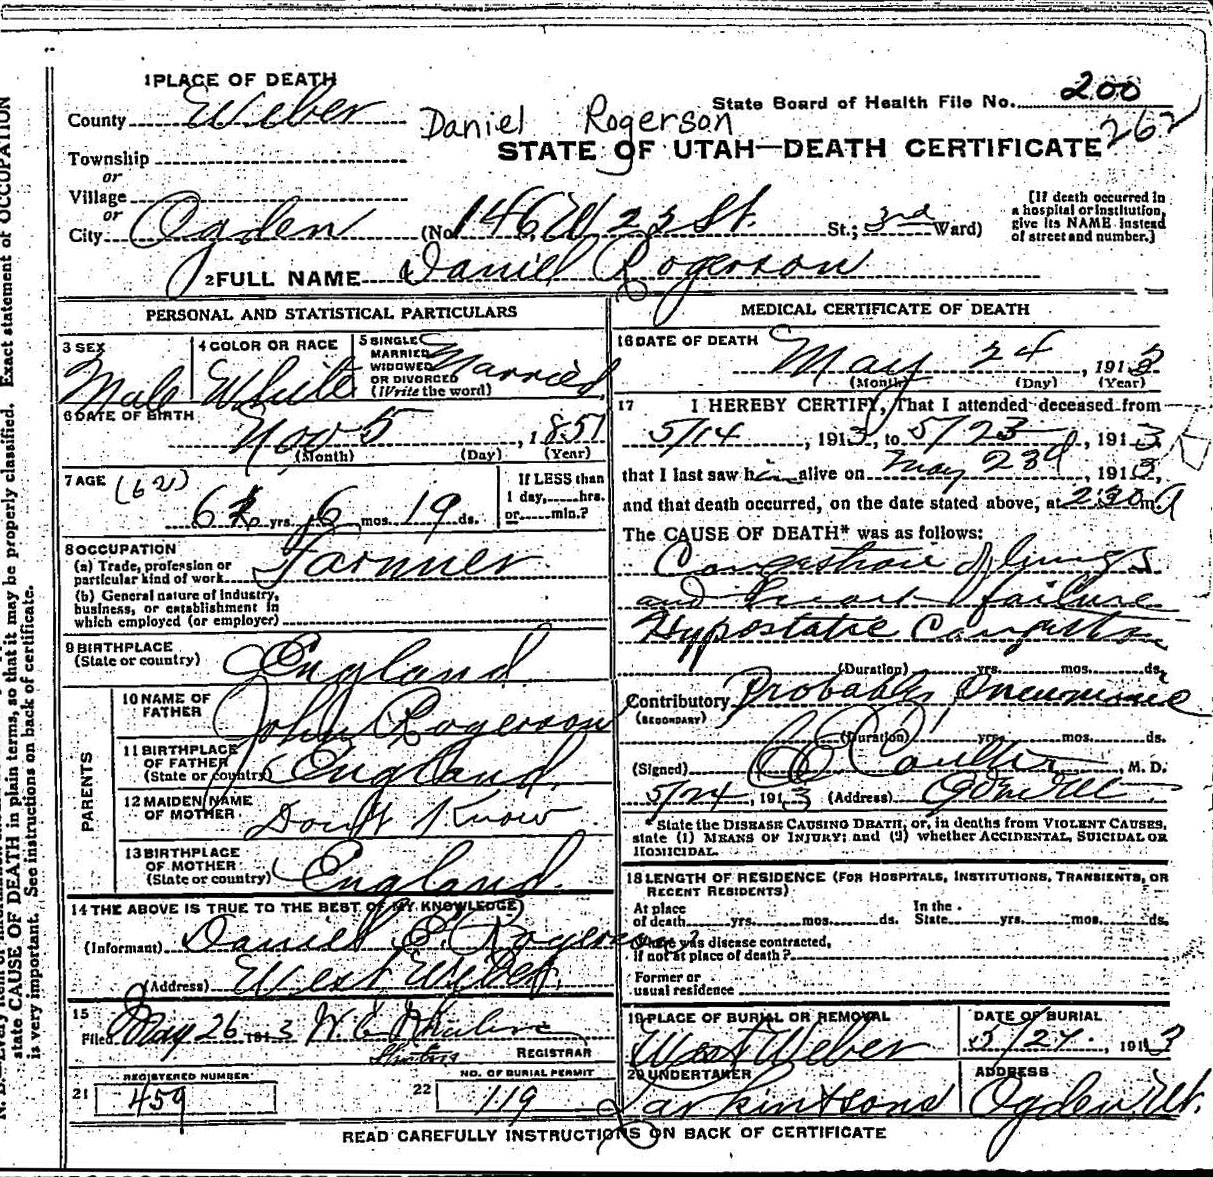 1 PLACE OF DEATH
State Board of Health File No. 200
County Weber
Daniel Rogerson
262
STATE OF UTAH—DEATH CERTIFICATE
Township
or
Village
or
City Ogden (No. 146 W 23 St. St.; 3rd Ward)
[If death occurred in
a hospital or institution,
give its NAME instead
of street and number.]
2 FULL NAME Daniel Rogerson
PERSONAL AND STATISTICAL PARTICULARS
3 SEX
Male
4 COLOR OR RACE
White
5 SINGLE
MARRIED
WIDOWED
OR DIVORCED
(Write the word)
Married
6 DATE OF BIRTH
Nov 5, 1851
(Month) (Day) (Year)
7 AGE (62)
yrs. 6 mos. 19 ds.
If LESS than
1 day, hrs.
or min.?
8 OCCUPATION
(a) Trade, profession or
particular kind of work Farmer
(b) General nature of industry,
business, or establishment in
which employed (or employer)
9 BIRTHPLACE
(State or country) England
PARENTS
10 NAME OF
FATHER John Rogerson
11 BIRTHPLACE
OF FATHER
(State or country) England
12 MAIDEN NAME
OF MOTHER Don't Know
13 BIRTHPLACE
OF MOTHER
(State or country) England
14 THE ABOVE IS TRUE TO THE BEST OF MY KNOWLEDGE
(Informant) Daniel E. Rogerson
(Address) West Weber
15
Filed May 26 1913 W. E.
REGISTRAR
REGISTERED NUMBER
21 459
NO. OF BURIAL PERMIT
22 119
MEDICAL CERTIFICATE OF DEATH
16 DATE OF DEATH
May 24, 1913
(Month) (Day) (Year)
17 I HEREBY CERTIFY, That I attended deceased from
5/14, 1913, to 5/23, 1913
that I last saw him alive on May 23d, 1913,
and that death occurred, on the date stated above, at 2:30 m. A
The CAUSE OF DEATH* was as follows:
Congestion of lungs
and heart failure
Hypostatic Congestion
(Duration) yrs. mos. ds.
Contributory Probably Pneumonia
(SECONDARY)
(Duration) yrs. mos. ds.
(Signed) Coulter, M. D.
5/24, 1913 (Address) Ogden Ut
State the DISEASE CAUSING DEATH, or, in deaths from VIOLENT CAUSES,
state (1) MEANS OF INJURY; and (2) whether ACCIDENTAL, SUICIDAL OR
HOMICIDAL.
18 LENGTH OF RESIDENCE (FOR HOSPITALS, INSTITUTIONS, TRANSIENTS, OR
RECENT RESIDENTS)
At place
of death yrs. mos. ds.
In the
State yrs. mos. ds.
Where was disease contracted,
if not at place of death?
Former or
usual residence
19 PLACE OF BURIAL OR REMOVAL
West Weber
DATE OF BURIAL
5/27, 1913
20 UNDERTAKER
Larkin & sons
ADDRESS
Ogden Ut.
READ CAREFULLY INSTRUCTIONS ON BACK OF CERTIFICATE
state CAUSE OF DEATH in plain terms, so that it may be properly classified. Exact statement of OCCUPATION
is very important. See instructions on back of certificate.